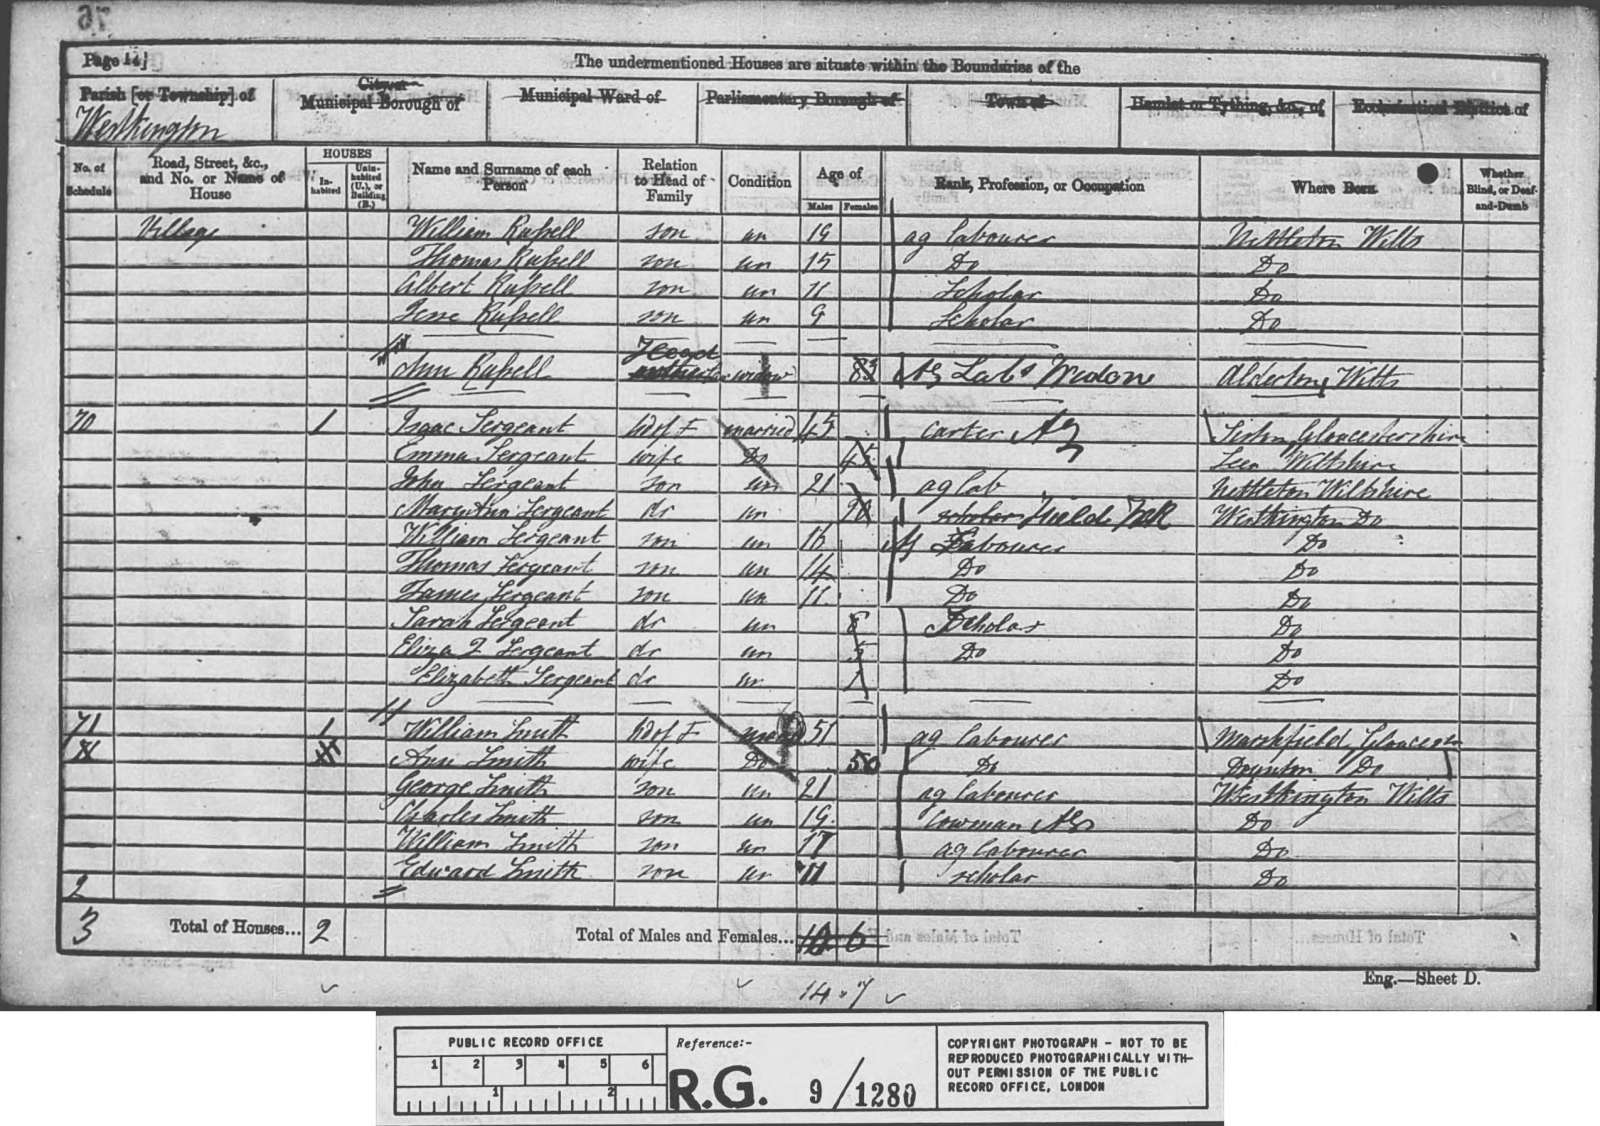 Page 14]
The undermentioned Houses are situate within the Boundaries of the
Parish [or Township] of
City or
Municipal Borough of
Municipal Ward of
Parliamentary Borough of
Town of
Hamlet or Tything, &c., of
Ecclesiastical District of
Westkington
No. of Schedule
Road, Street, &c., and No. or Name of House
HOUSES
Inhabited
Uninhabited (U.), or Building (B.)
Name and Surname of each Person
Relation to Head of Family
Condition
Age of
Males
Females
Rank, Profession, or Occupation
Where Born
Whether Blind, or Deaf-and-Dumb
Village William Russell son un 19 ag labourer Nettleton Wilts
Thomas Russell son un 15 Do Do
Albert Russell son un 11 Scholar Do
Jesse Russell son un 9 Scholar Do
Head
Ann Russell widow 83 Ag Labs Widow Alderton Wilts
70 1 Isaac Sergeant Hd of F married 45 carter Ag Gloucestershire
Emma Sergeant wife Do 45 Wiltshire
John Sergeant son un 21 ag lab Nettleton Wiltshire
Mary Ann Sergeant dr un scholar Field Westkington Do
William Sergeant son un 16 Ag Labourer Do
Thomas Sergeant son un 14 Do Do
James Sergeant son un 11 Do Do
Sarah Sergeant dr un 8 Scholar Do
Eliza Sergeant dr un 5 Do Do
Elizabeth Sergeant dr un 1 Do
71 1 William Smith Hd of F 51 ag labourer Marshfield Gloucester
Ann Smith wife Do 50 Do Doynton Do
George Smith son un 21 ag labourer Westkington Wilts
Charles Smith son un 19 Cowman Ag Do
William Smith son un 17 ag labourer Do
Edward Smith son un 11 scholar Do
2
3 Total of Houses... 2 Total of Males and Females... 6
14 . 7
Eng.—Sheet D.
PUBLIC RECORD OFFICE
1 2 3 4 5 6
1 2
Reference:-
R.G. 9/1280
COPYRIGHT PHOTOGRAPH - NOT TO BE
REPRODUCED PHOTOGRAPHICALLY WITH-
OUT PERMISSION OF THE PUBLIC
RECORD OFFICE, LONDON